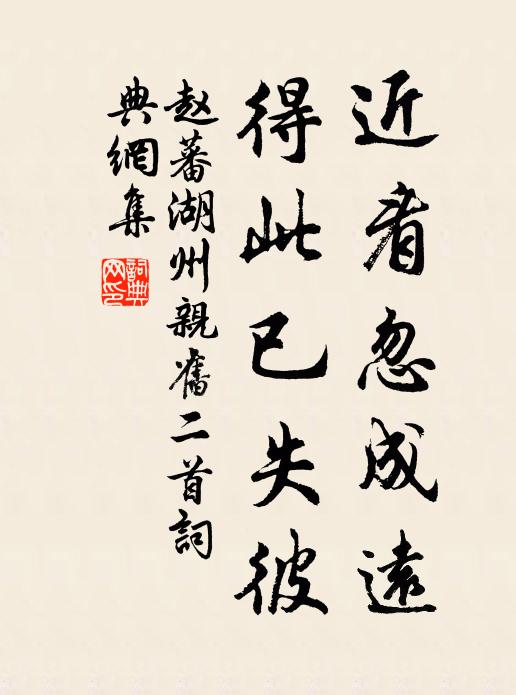 近者忽成遠
得此已失彼
赵蕃湖州親舊二首詞
典網集
詞典
网印